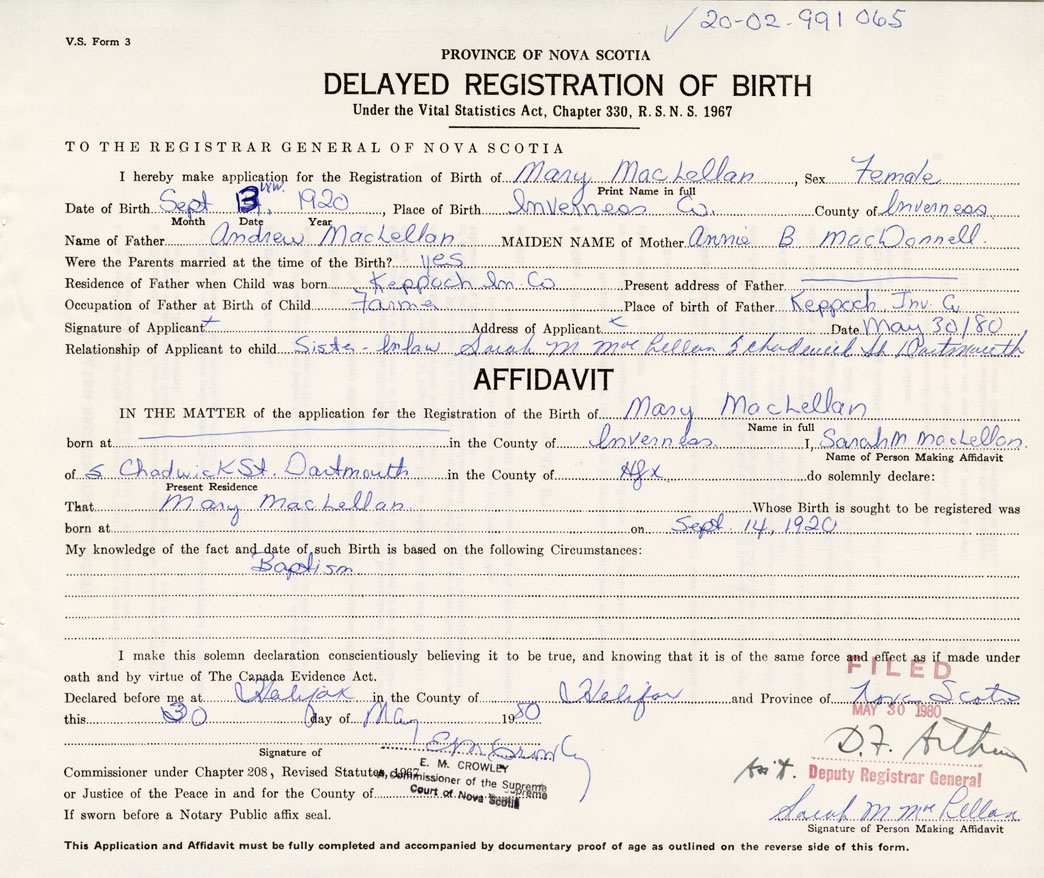 ✓20-02-991065
V.S. Form 3
PROVINCE OF NOVA SCOTIA
DELAYED REGISTRATION OF BIRTH
Under the Vital Statistics Act, Chapter 330, R. S. N. S. 1967
TO THE REGISTRAR GENERAL OF NOVA SCOTIA
I hereby make application for the Registration of Birth of Mary MacLellan, Sex Female
Print Name in full
Date of Birth Sept 13, 1920, Place of Birth Inverness Co. County of Inverness
Month Date Year
Name of Father Andrew MacLellan MAIDEN NAME of Mother Annie B MacDonnell.
Were the Parents married at the time of the Birth? yes
Residence of Father when Child was born Keppoch In. Co Present address of Father
Occupation of Father at Birth of Child Farmer Place of birth of Father Keppoch Inv. Co
Signature of Applicant x Address of Applicant x Date May 30/80
Relationship of Applicant to child Sister-Inlaw Sarah M MacLellan 5 Chadwick St Dartmouth
AFFIDAVIT
IN THE MATTER of the application for the Registration of the Birth of Mary MacLellan
Name in full
born at in the County of Inverness I, Sarah M MacLellan.
Name of Person Making Affidavit
of 5 Chadwick St. Dartmouth in the County of Hfx do solemnly declare:
Present Residence
That Mary MacLellan Whose Birth is sought to be registered was
born at on Sept. 14, 1920
My knowledge of the fact and date of such Birth is based on the following Circumstances:
Baptism
I make this solemn declaration conscientiously believing it to be true, and knowing that it is of the same force and effect as if made under
oath and by virtue of The Canada Evidence Act.
FILED
Declared before me at Halifax in the County of Halifax and Province of Nova Scotia
this 30 day of May 1980
MAY 30 1980
D.F. Arthur
Signature of
E. M. CROWLEY
Commissioner under Chapter 208, Revised Statutes, 1967
A Commissioner of the Supreme
Ass't. Deputy Registrar General
or Justice of the Peace in and for the County of
Court of Nova Scotia
If sworn before a Notary Public affix seal.
Sarah M MacLellan
Signature of Person Making Affidavit
This Application and Affidavit must be fully completed and accompanied by documentary proof of age as outlined on the reverse side of this form.